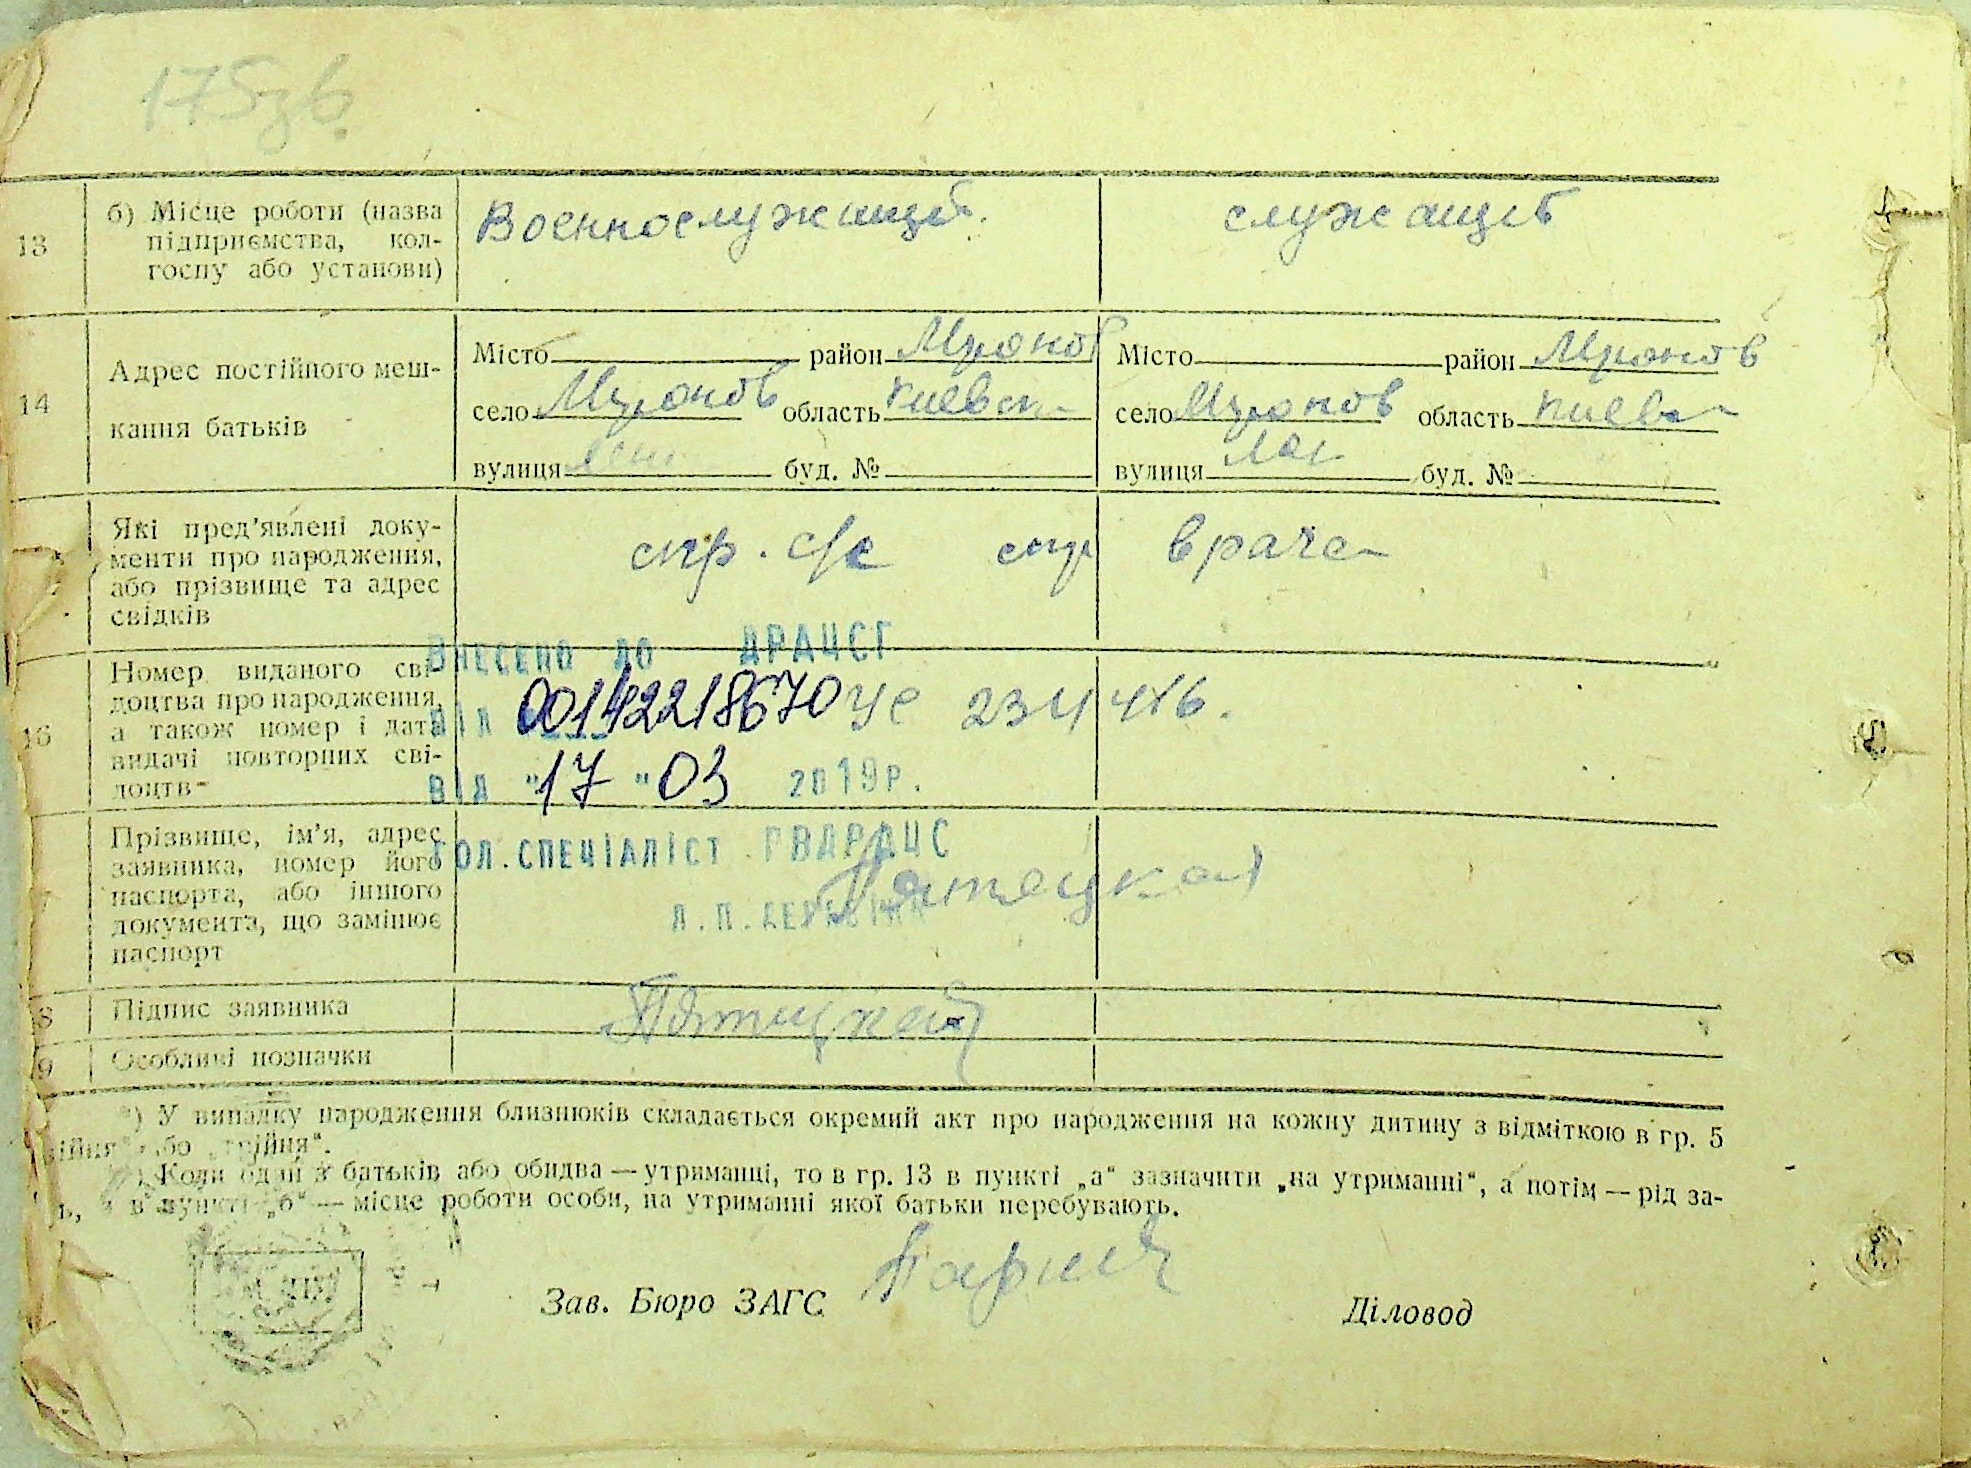 175зв.
13
б) Місце роботи (назва
підприємства, кол-
госпу або установи)
Военнослужащий.
служащая
14
Адрес постійного меш-
кання батьків
Місто район Миронов
село Миронов область Киевск
вулиця буд. №
Місто район Миронов
село Миронов область Киев
вулиця буд. №
Які пред’явлені доку-
менти про народження,
або прізвище та адрес
свідків
спр. с/с спр врача
16
Номер виданого сві-
доцтва про народження,
а також номер і дата
видачі повторних сві-
доцтв
Внесено до ДРАЦСГ
00142218670 УС 234 446.
від "17" 03 2019р.
Прізвище, ім’я, адрес
заявника, номер його
паспорта, або іншого
документа, що замінює
паспорт
Гол. спеціаліст ГВДРАЦС
8
Підпис заявника
9
Особливі позначки
*) У випадку народження близнюків складається окремий акт про народження на кожну дитину з відміткою в гр. 5
або „трійня“.
Коли один з батьків або обидва — утриманці, то в гр. 13 в пункті „а“ зазначити „на утриманні“, а потім — рід за-
в пункті „б“ — місце роботи особи, на утриманні якої батьки перебувають.
Зав. Бюро ЗАГС
Діловод